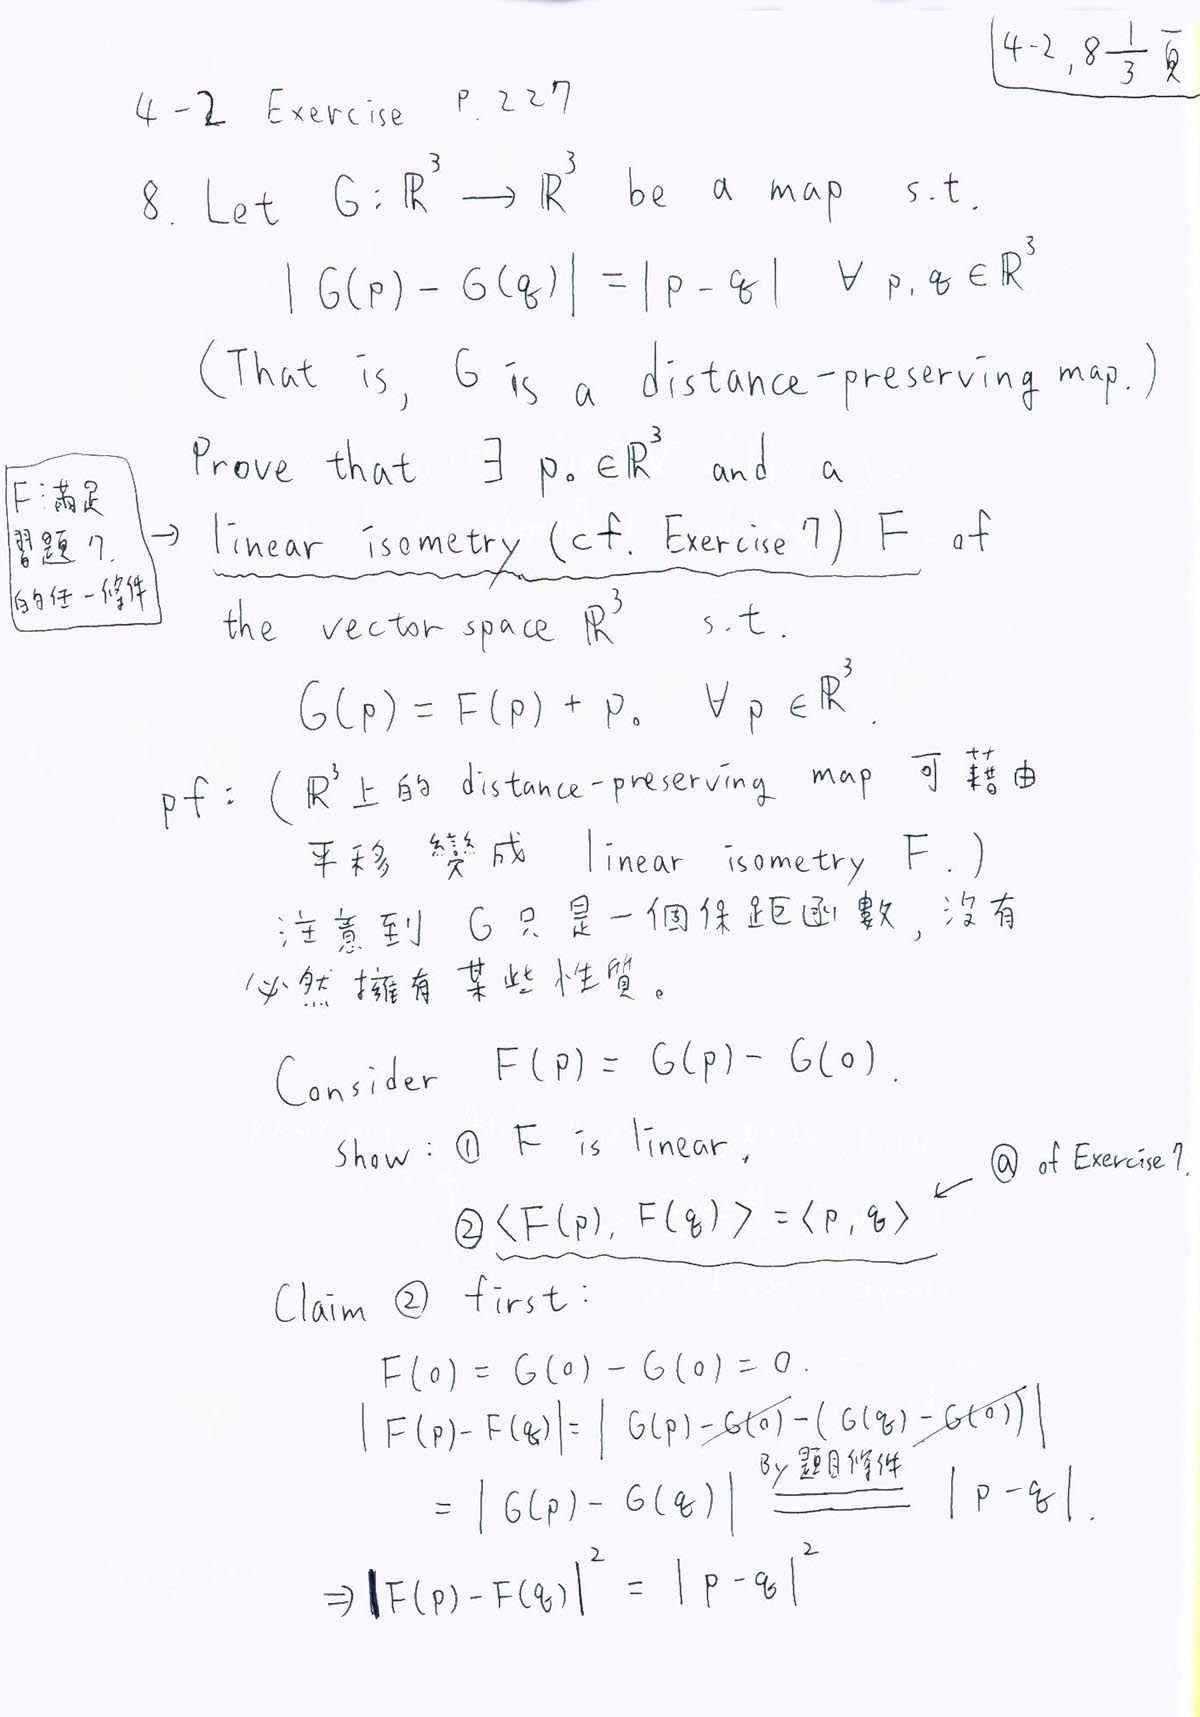 4-2, 8 1/3 頁
4-2 Exercise P. 227
8. Let G: ℝ³ → ℝ³ be a map s.t.
|G(p) - G(q)| = |p - q| ∀ p, q ∈ ℝ³
(That is, G is a distance-preserving map.)
Prove that ∃ p₀ ∈ ℝ³ and a
F:滿足
習題 7.
的任一條件
→ linear isometry (cf. Exercise 7) F of
the vector space ℝ³ s.t.
G(p) = F(p) + p₀ ∀ p ∈ ℝ³.
pf: (ℝ³上的 distance-preserving map 可藉由
平移 變成 linear isometry F.)
注意到 G 只是一個保距函數, 沒有
必然擁有某些性質。
Consider F(p) = G(p) - G(0).
show: ① F is linear.
ⓐ of Exercise 7.
② ⟨F(p), F(q)⟩ = ⟨p, q⟩ ↙
Claim ② first:
F(0) = G(0) - G(0) = 0.
|F(p) - F(q)| = |G(p) - G(0) - (G(q) - G(0))|
By 題目條件
= |G(p) - G(q)| = |p - q|.
⇒ |F(p) - F(q)|² = |p - q|²